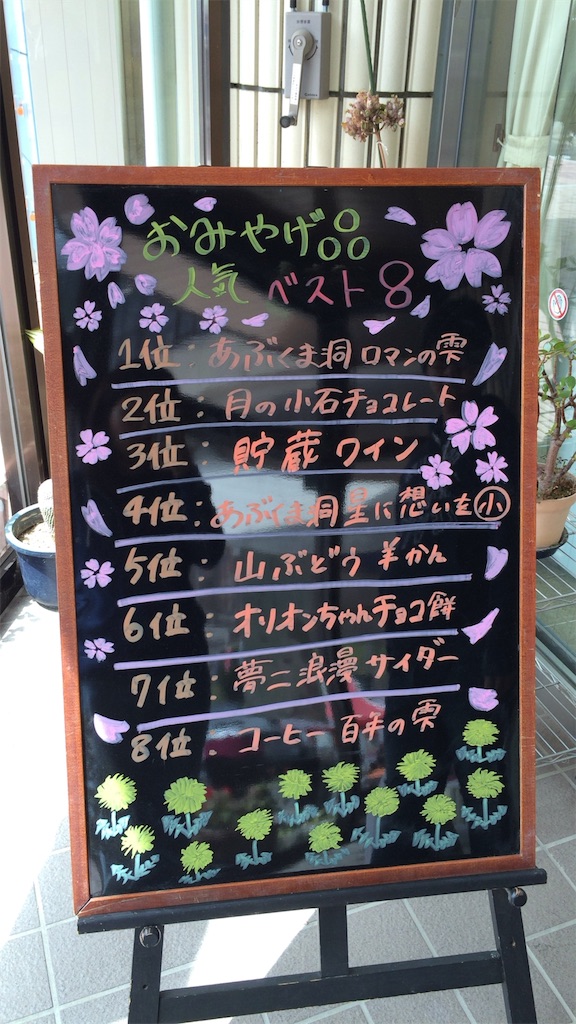 おみやげ品
人気 ベスト8
1位:あぶくま洞ロマンの雫
2位:月の小石チョコレート
3位:貯蔵ワイン
4位:あぶくま洞星に想いを小
5位:山ぶどう羊かん
6位:オリオンちゃんチョコ餅
7位:夢二浪漫サイダー
8位:コーヒー百年の雫